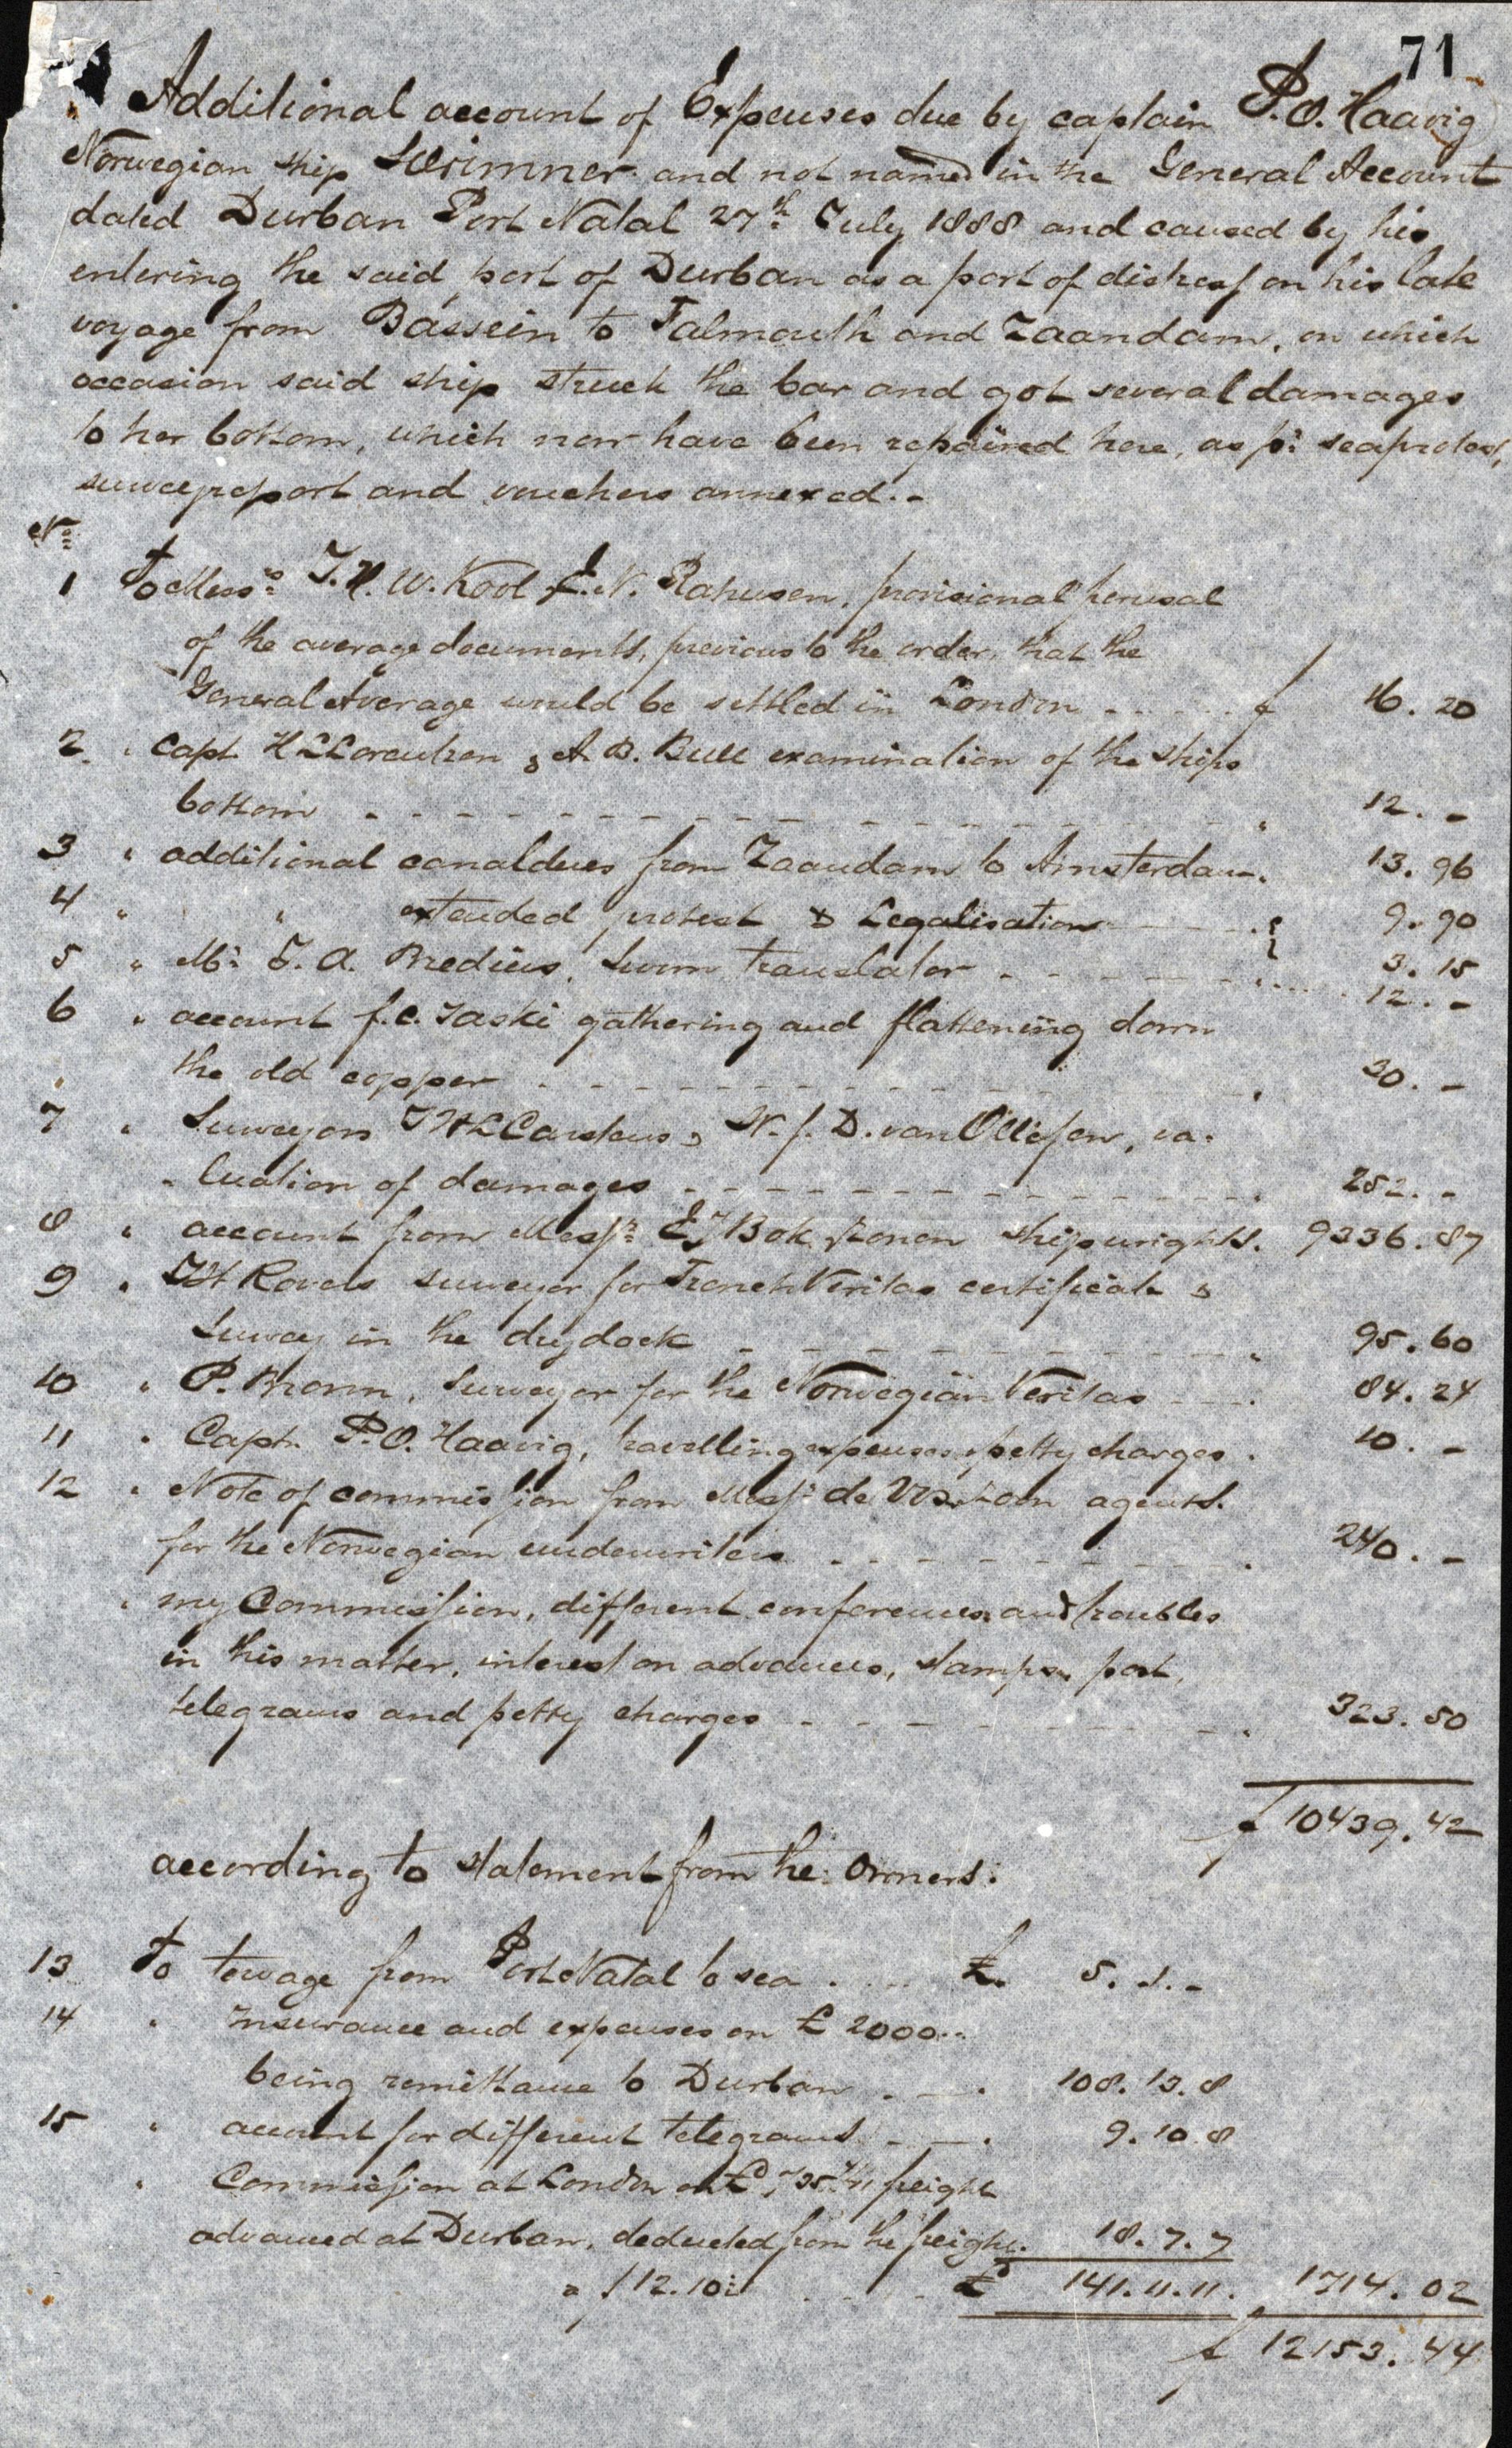 71
Additional account of Expenses due by captain P. O. Haavig
Norwegian ship and not named in the General Account
dated Durban Port Natal 27th July 1888 and caused by his
entering the said port of Durban as a port of distress on his late
voyage from Bassein to Falmouth and Zaandam, on which
occasion said ship struck the bar and got several damages
to her bottom, which now have been repaired here, as pr seaprotest,
surveyreport and vouchers annexed.-
No
1 To Messrs W. Kool N. Rahusen, provisional perusal
of the average documents, previous to the order, that the
General Average would be settled in London - - - - f 16. 20
2 " Capt. & A. B. Bull examination of the ships
bottom - - - - - - - - " 12. -
3 " additional canaldues from Zaandam to Amsterdam " 13. 96
4 " " extended protest & Legalisation - - - 9. 90
5 " Mr Bredius, sworn translator - - - - 3. 15
12. -
6 " account gathering and flattening down
" the old copper - - - - - - - - " 30. -
7 " Surveyors & D. van Ollefen, va-
luation of damages - - - - - - - - " 252. -
8 " account from Messrs Bok & Zonen shipwrights. 9336. 87
9 " surveyor for French Veritas certificate &
Survey in the drydock - - - - - - - " 95. 60
10 " P. Brown, Surveyor for the Norwegian Veritas - - 84. 24
11 " Capt. P. O. Haavig, travelling expenses & petty charges " 10. -
12 " Note of commission from Messrs de Vos & Zoon agents.
for the Norwegian underwriters - - - - - - " 240. -
" my Commission, different conferences and troubles
in this matter, interest on advances, stamps, post,
telegrams and petty charges - - - - - - - " 323. 50
f 10439. 42
according to statement from the Owners:
13 To towage from Port Natal to sea . . . . £. 5. 1. -
14 " Insurance and expenses on £ 2000.-
being remittance to Durban - - - " 108. 13. 8
15 " account for different telegrams - - - " 9. 10. 8
" Commission at London on £ freight
advanced at Durban, deducted from the freight. 18. 7. 7
a f 12.10 - - - - £ 141. 11. 11. 1714. 02
f 12153. 44